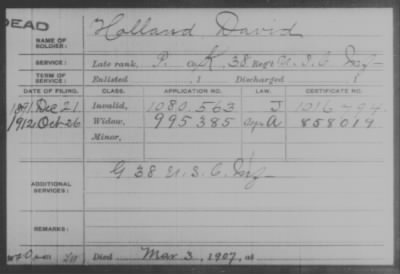 DEAD
NAME OF SOLDIER: Holland David
SERVICE: Late rank, P. Co. K, 38 Reg't U.S.C. Inf
TERM OF SERVICE: Enlisted , 1 Discharged , 1
DATE OF FILING. CLASS. APPLICATION NO. LAW. CERTIFICATE NO.
1891 Dec 21 Invalid, 1080.563 J 1016494
1912 Oct 26 Widow, 995385 A 858019
Minor,
ADDITIONAL SERVICES: G 38 U.S.C. Inf
REMARKS:
Died Mar 3, 1907, at